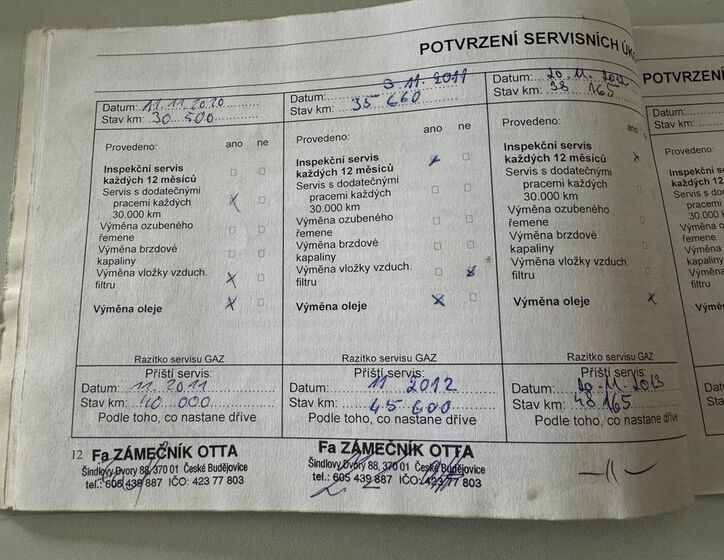 POTVRZENÍ SERVISNÍCH ÚK
Datum: 11.11.2010
Stav km: 30 500
Provedeno: ano ne
Inspekční servis
každých 12 měsíců
Servis s dodatečnými
pracemi každých
30.000 km
Výměna ozubeného
řemene
Výměna brzdové
kapaliny
Výměna vložky vzduch.
filtru
Výměna oleje
Razítko servisu GAZ
Příští servis:
Datum: 11. 2011
Stav km: 40 000
Podle toho, co nastane dříve
12
Fa ZÁMEČNÍK OTTA
Šindlovy Dvory 88, 370 01 České Budějovice
tel.: 605 439 887 IČO: 423 77 803
Datum: 3 11. 2011
Stav km: 35 660
Provedeno: ano ne
Inspekční servis
každých 12 měsíců
Servis s dodatečnými
pracemi každých
30.000 km
Výměna ozubeného
řemene
Výměna brzdové
kapaliny
Výměna vložky vzduch.
filtru
Výměna oleje
Razítko servisu GAZ
Příští servis:
Datum: 11 2012
Stav km: 45 600
Podle toho, co nastane dříve
Fa ZÁMEČNÍK OTTA
Šindlovy Dvory 88, 370 01 České Budějovice
tel.: 605 439 887 IČO: 423 77 803
Datum: 20.11.2012
Stav km: 38 165
Provedeno: ano
Inspekční servis
každých 12 měsíců
Servis s dodatečnými
pracemi každých
30.000 km
Výměna ozubeného
řemene
Výměna brzdové
kapaliny
Výměna vložky vzduch.
filtru
Výměna oleje
Razítko servisu GAZ
Příští servis:
Datum: 20.11.2013
Stav km: 48 165
Podle toho, co nastane dříve
-11-
POTVRZENÍ
Datum:
Stav km:
Provedeno:
Inspekční
každých
Servis s
prac
30.0
Výměna
řemene
Výměna
kapaliny
Výměna
filtru
Výměna
Datum
Stav
Po